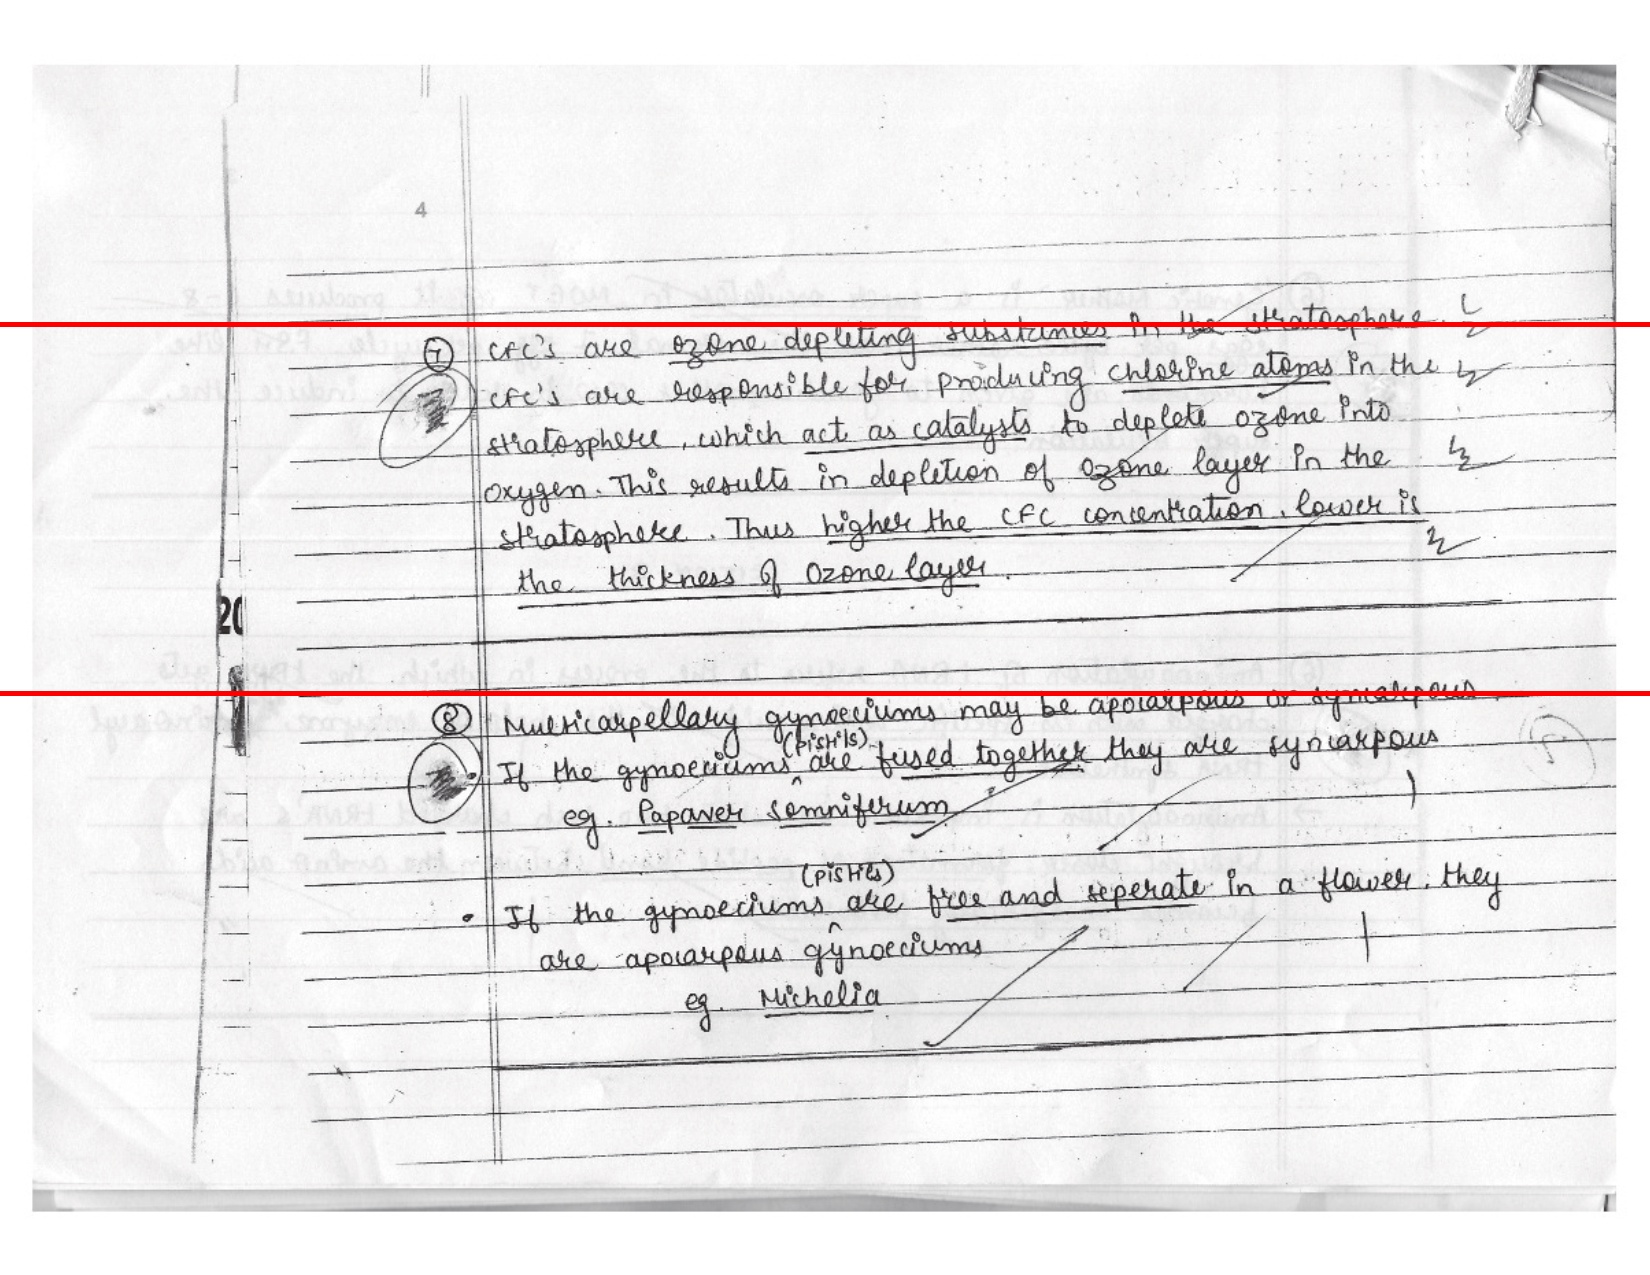 4
7 CFC's are ozone depleting substances in the stratosphere.
CFC's are responsible for producing chlorine atoms in the
stratosphere, which act as catalysts to deplete ozone into
oxygen. This results in depletion of ozone layer in the
stratosphere. Thus higher the CFC concentration, lower is
the thickness of Ozone layer.
20
8 Multicarpellary gynoeciums may be apocarpous or syncarpous
(pistils)
• If the gynoeciums ^ are fused together they are syncarpous
eg. Papaver somniferum
(pistils)
• If the gynoeciums ^ are free and seperate in a flower, they
are apocarpous gynoeciums
eg. Michelia